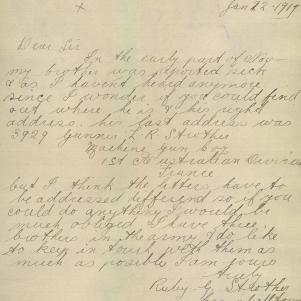 Jan 22 1919
x
Dear Sir
In the early part of Nov
my brother was reported sick
& as I havent heard anymore
since I wonder if you could find
out where he is & his right
address. his last address was
3929 Gunner L. R. Strother
Machine Gun Coy
1st Australian Division
France
but I think the letters have to
be addressed different so if you
could do anything I would be
much obliged. I have three
brothers in the army & do like
to keep in touch with them as
much as possible I am yours
truly
Ruby G Strother